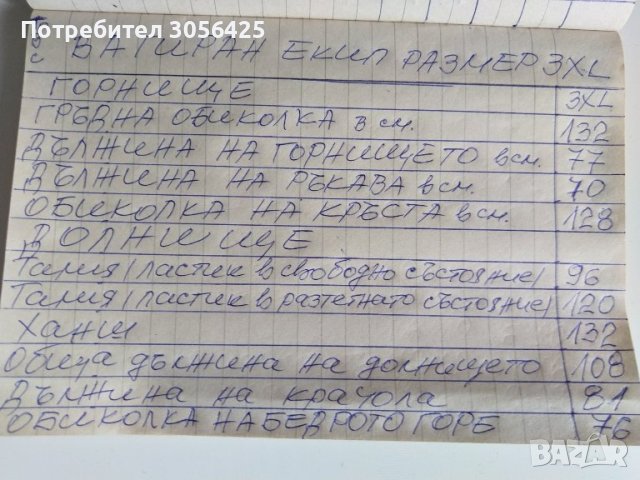 Потребител 3056425
ВАТИРАН ЕКИП РАЗМЕР 3XL
ГОРНИЩЕ 3XL
ГРЪДНА ОБИКОЛКА В см. 132
ДЪЛЖИНА НА ГОРНИЩЕТО в см. 77
ДЪЛЖИНА НА РЪКАВА в см. 70
ОБИКОЛКА НА КРЪСТА в см. 128
ДОЛНИЩЕ
Талия (ластик в свободно състояние) 96
Талия (ластик в разтегнато състояние) 120
Ханш 132
Обща дължина на долнището 108
Дължина на крачола 81
ОБИКОЛКА НА БЕДРОТО ГОРЕ 76
BAZAR